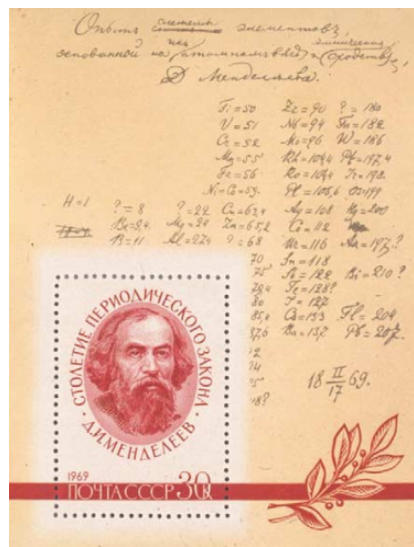 Опытъ системы элементовъ,
основанной на ихъ атомномъ вѣсѣ и химическомъ сходствѣ,
Д. Менделѣева.
Ti=50 Zr=90 ?=180
V=51 Nb=94 Ta=182
Cr=52 Mo=96 W=186
Mn=55 Rh=104,4 Pt=197,4
Fe=56 Ru=104,4 Ir=198.
Ni=Co=59. Pl=106,6 Os=199
H=1 ?=8 ?=22 Cu=63,4 Ag=108 Hg=200
Be=9,4 Mg=24 Zn=65,2 Cd=112
B=11 Al=27,4 ?=68 Ur=116 Au=197?
70 Sn=118
75 Sb=122 Bi=210?
79,4 Te=128?
80 J=127
85,4 Cs=133 Tl=204
87,6 Ba=137 Pb=207.
18 II/17 69.
СТОЛЕТИЕ ПЕРИОДИЧЕСКОГО ЗАКОНА
· Д.И.МЕНДЕЛЕЕВ ·
1969
ПОЧТА СССР 30К